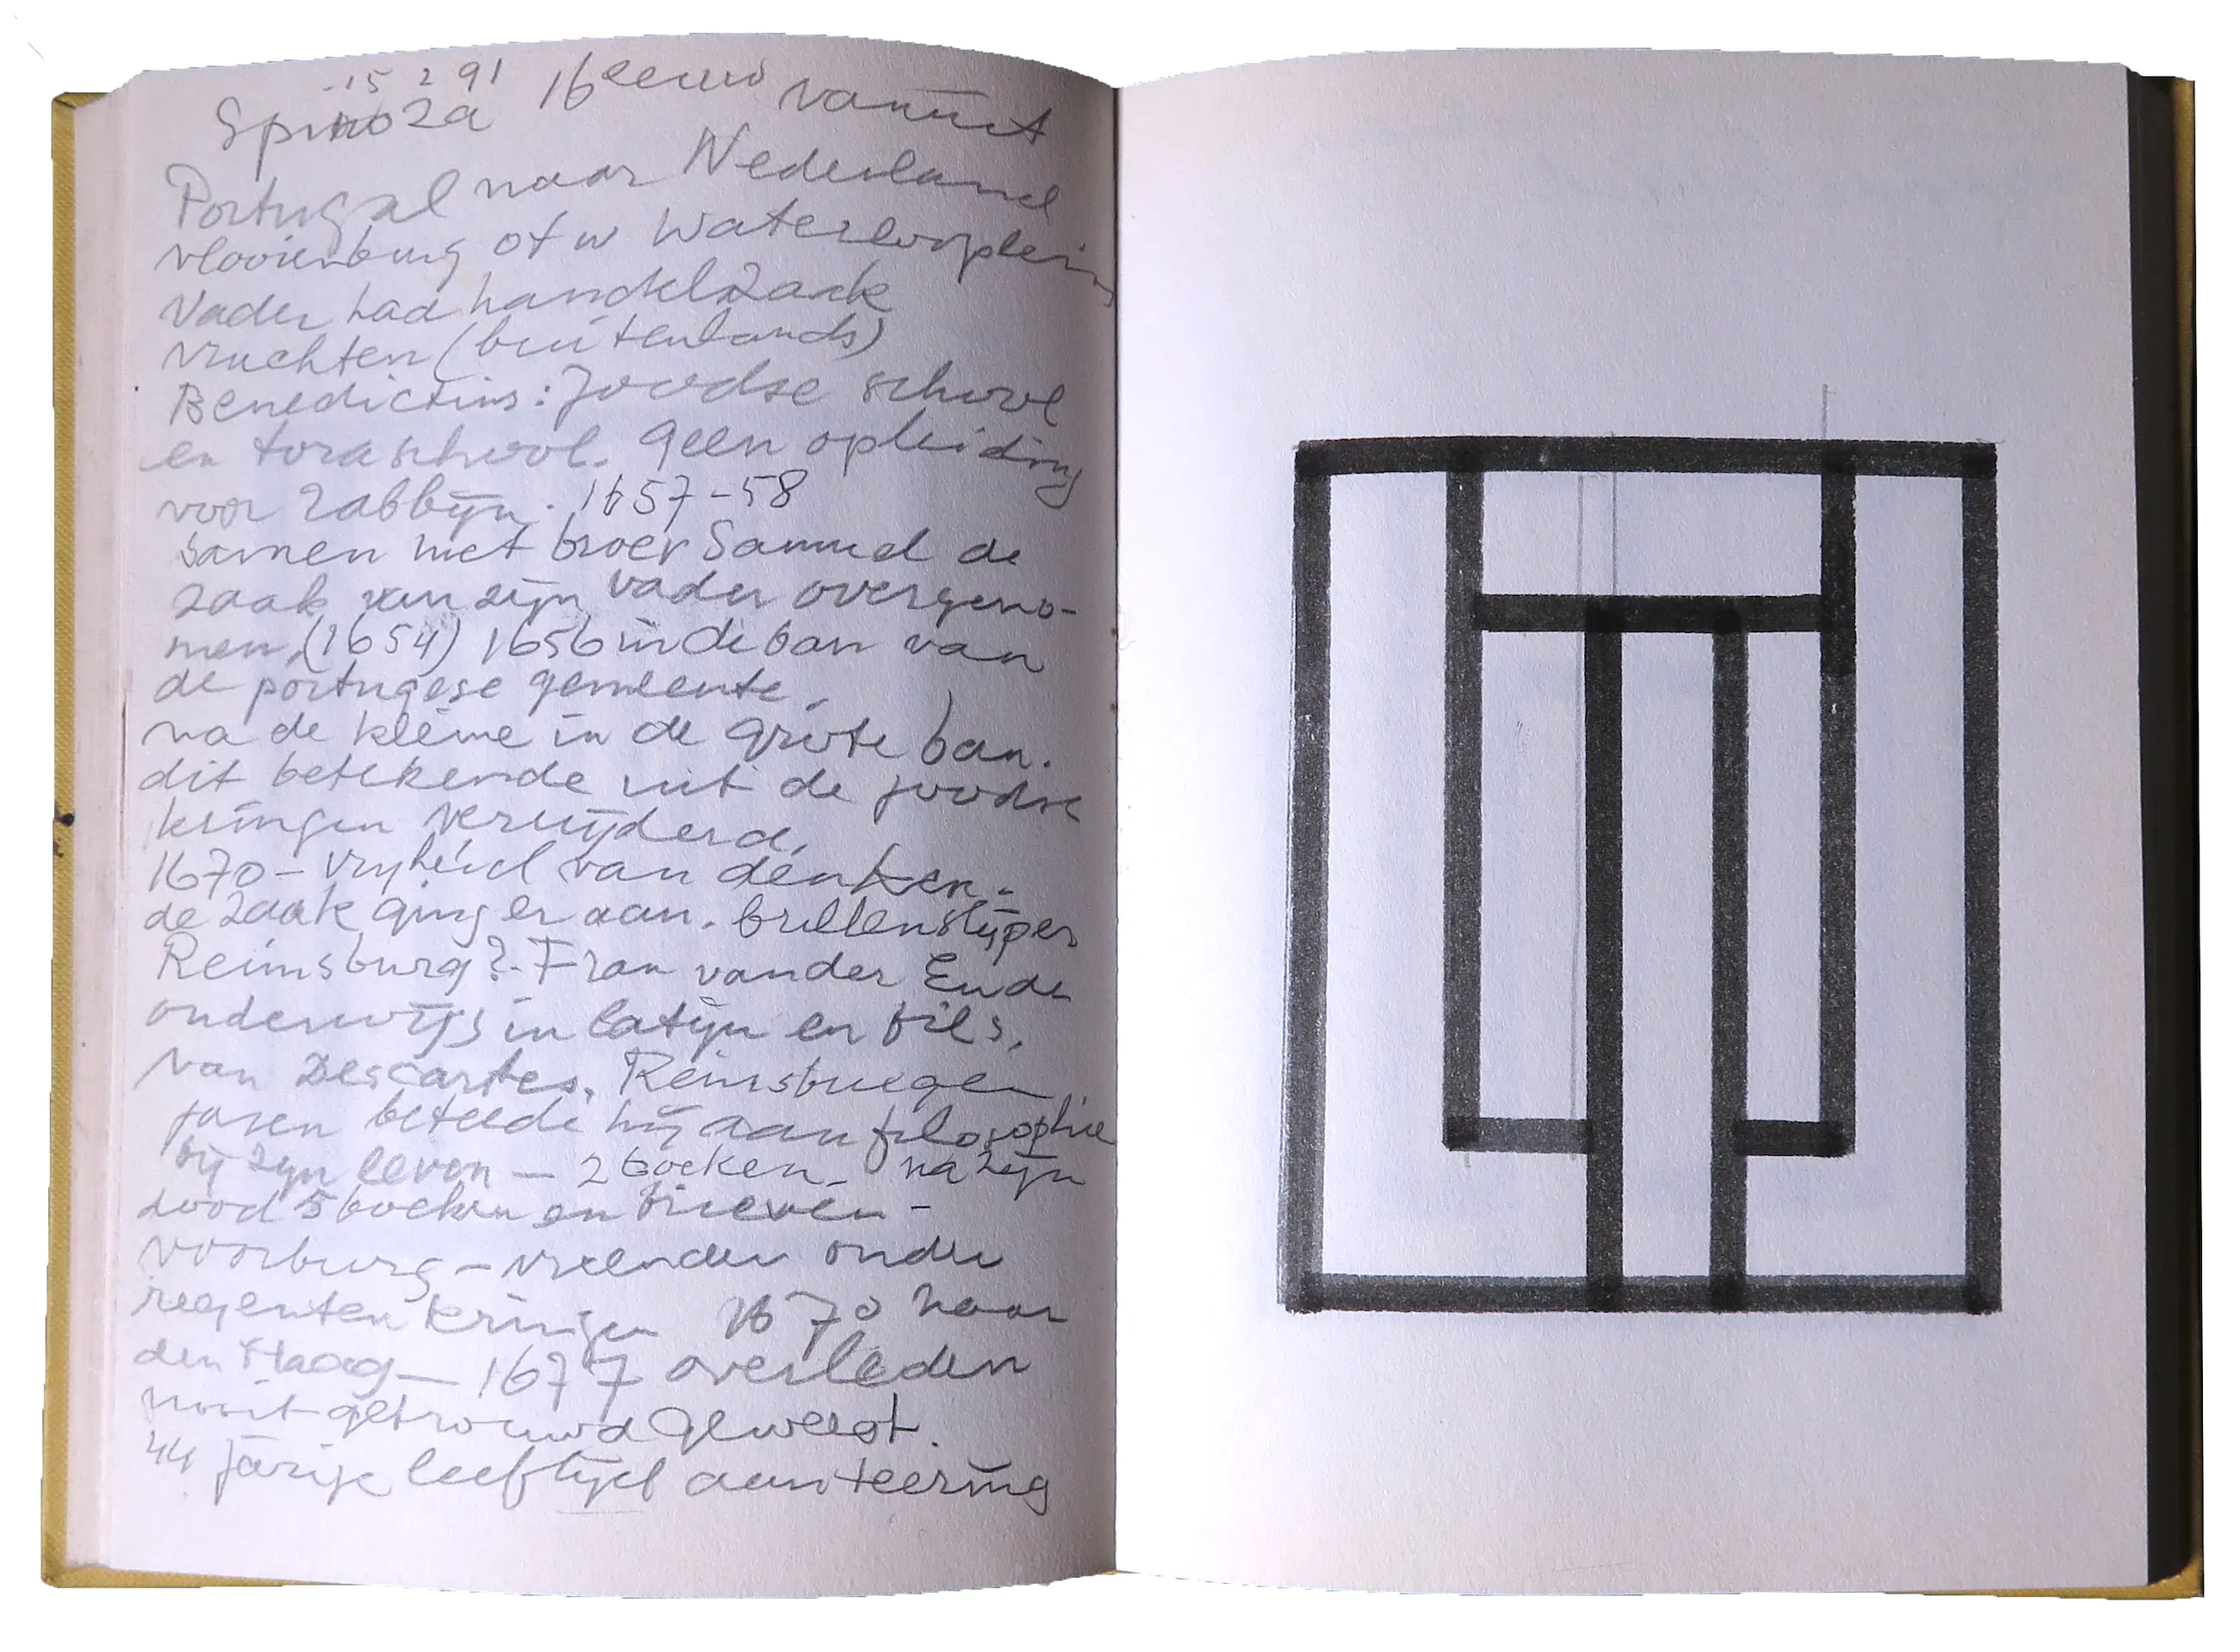 15 2 91
Spinoza 16 eeuw vanuit
Portugal naar Nederland
vlooienburg of w Waterlooplein
Vader had handelszaak
vruchten (buitenlands)
Benedictus: Joodse school
en toraschool. geen opleiding
voor rabbijn. 1657-58
samen met broer Samuel de
zaak van zijn vader overgeno-
men, (1654) 1656 in de ban van
de portugese gemeente.
na de kleine in de grote ban.
dit betekende uit de joodse
kringen verwijderd.
1670 - vrijheid van denken.
de zaak ging er aan. brillenslijper
Reinsburg? - Fran van der Ende
onderwijs in latijn en fils.
van Descartes. Reinsburgen
jaren besteede hij aan filosophie
bij zijn leven - 2 boeken. na zijn
dood 5 boeken en brieven -
voorburg - vrienden onder
regenten kringen 1670 naar
den Haag - 1677 overleden
nooit getrouwd geweest.
44 jarige leeftijd aan teering